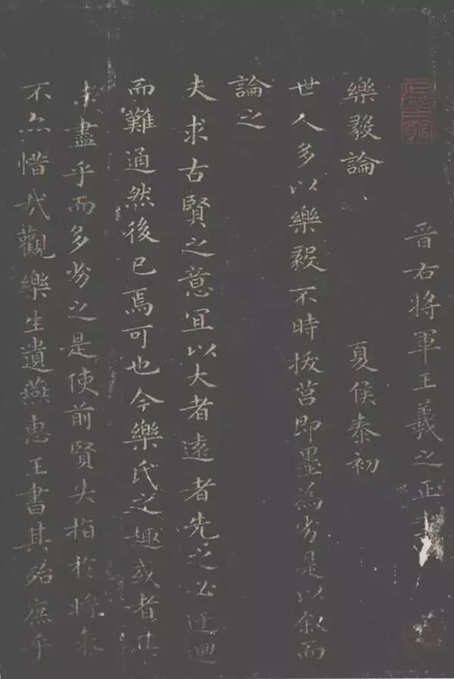 晉右將軍王羲之正書
樂毅論 夏侯泰初
世人多以樂毅不時拔莒即墨為劣是以叙而
論之
夫求古賢之意宜以大者遠者先之必迂迴
而難通然後已焉可也今樂氏之趣或者其
未盡乎而多劣之是使前賢失指於將来
不亦惜哉觀樂生遺燕惠王書其殆庶乎